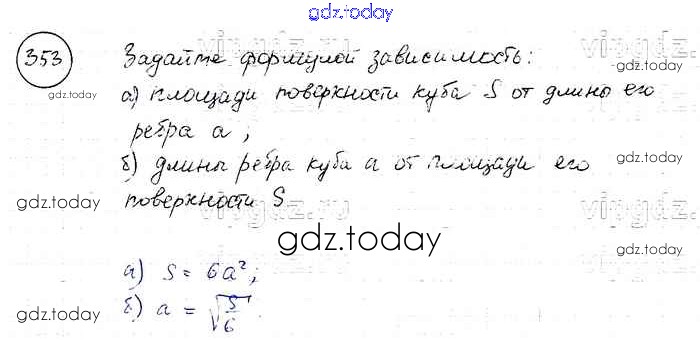 gdz.today
353 Задайте формулой зависимость:
а) площади поверхности куба S от длины его
ребра a;
б) длины ребра куба a от площади его
поверхности S
а) S = 6a²;
б) a = √(S/6)
gdz.today
gdz.today
gdz.today
gdz.today
gdz.today
gdz.today
gdz.today
gdz.today